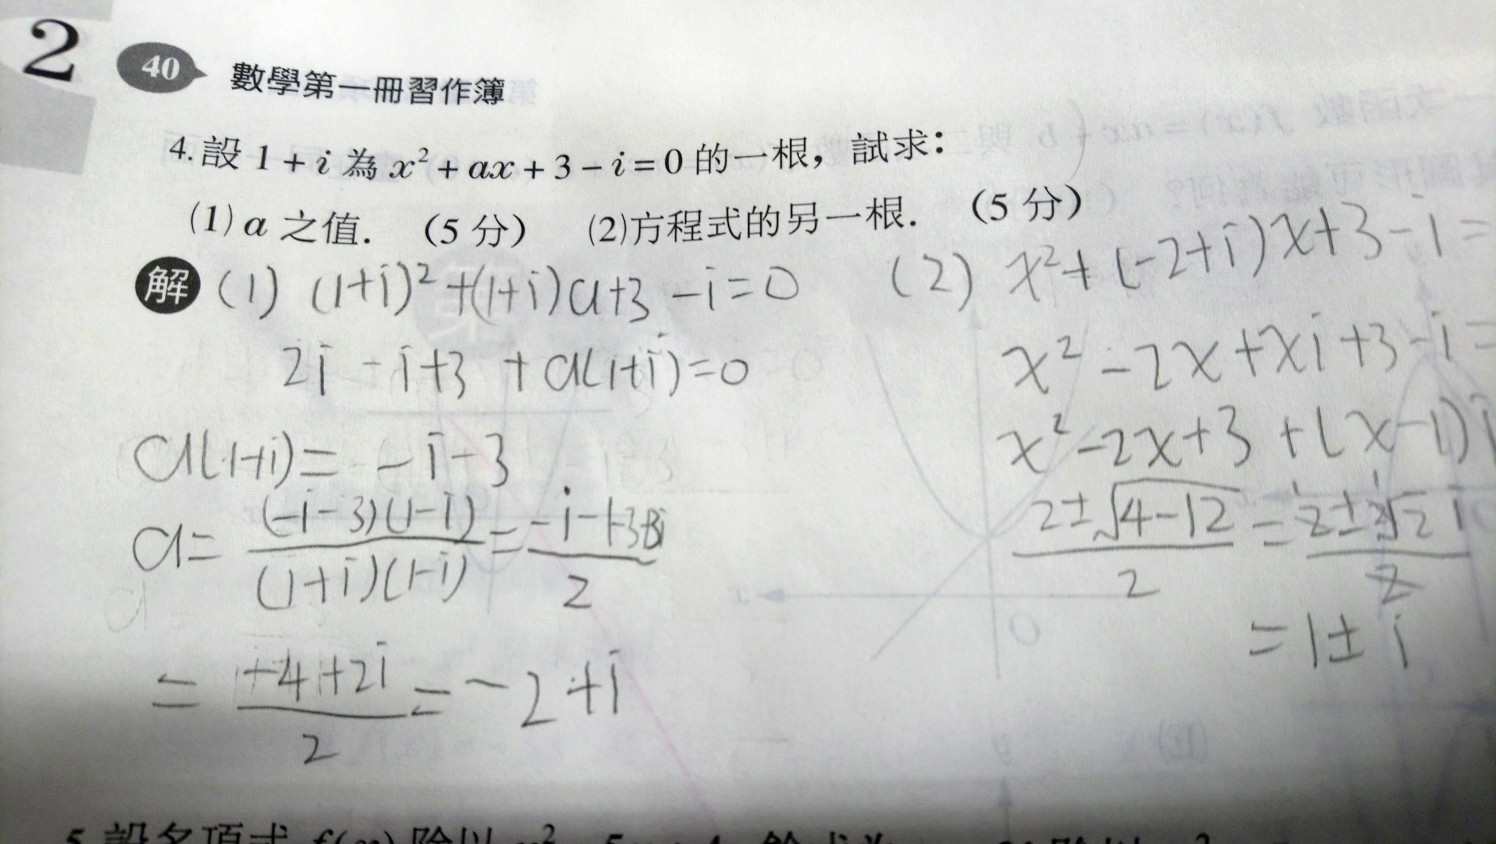 2
40 數學第一冊習作簿
4. 設 1 + i 為 x² + ax + 3 − i = 0 的一根，試求：
(1) a 之值. （5 分） (2)方程式的另一根. （5 分）
解 (1) (1+i)² + (1+i)a + 3 − i = 0
2i − i + 3 + a(1+i) = 0
a(1+i) = −i − 3
a = (−i−3)(1−i) / (1+i)(1−i) = −i−1−3+3i / 2
= −4+2i / 2 = −2+i
(2) x² + (−2+i)x + 3 − i =
x² − 2x + xi + 3 − i =
x² − 2x + 3 + (x−1)i
2±√4−12 / 2 = 2±2√2 i / 2
= 1± i